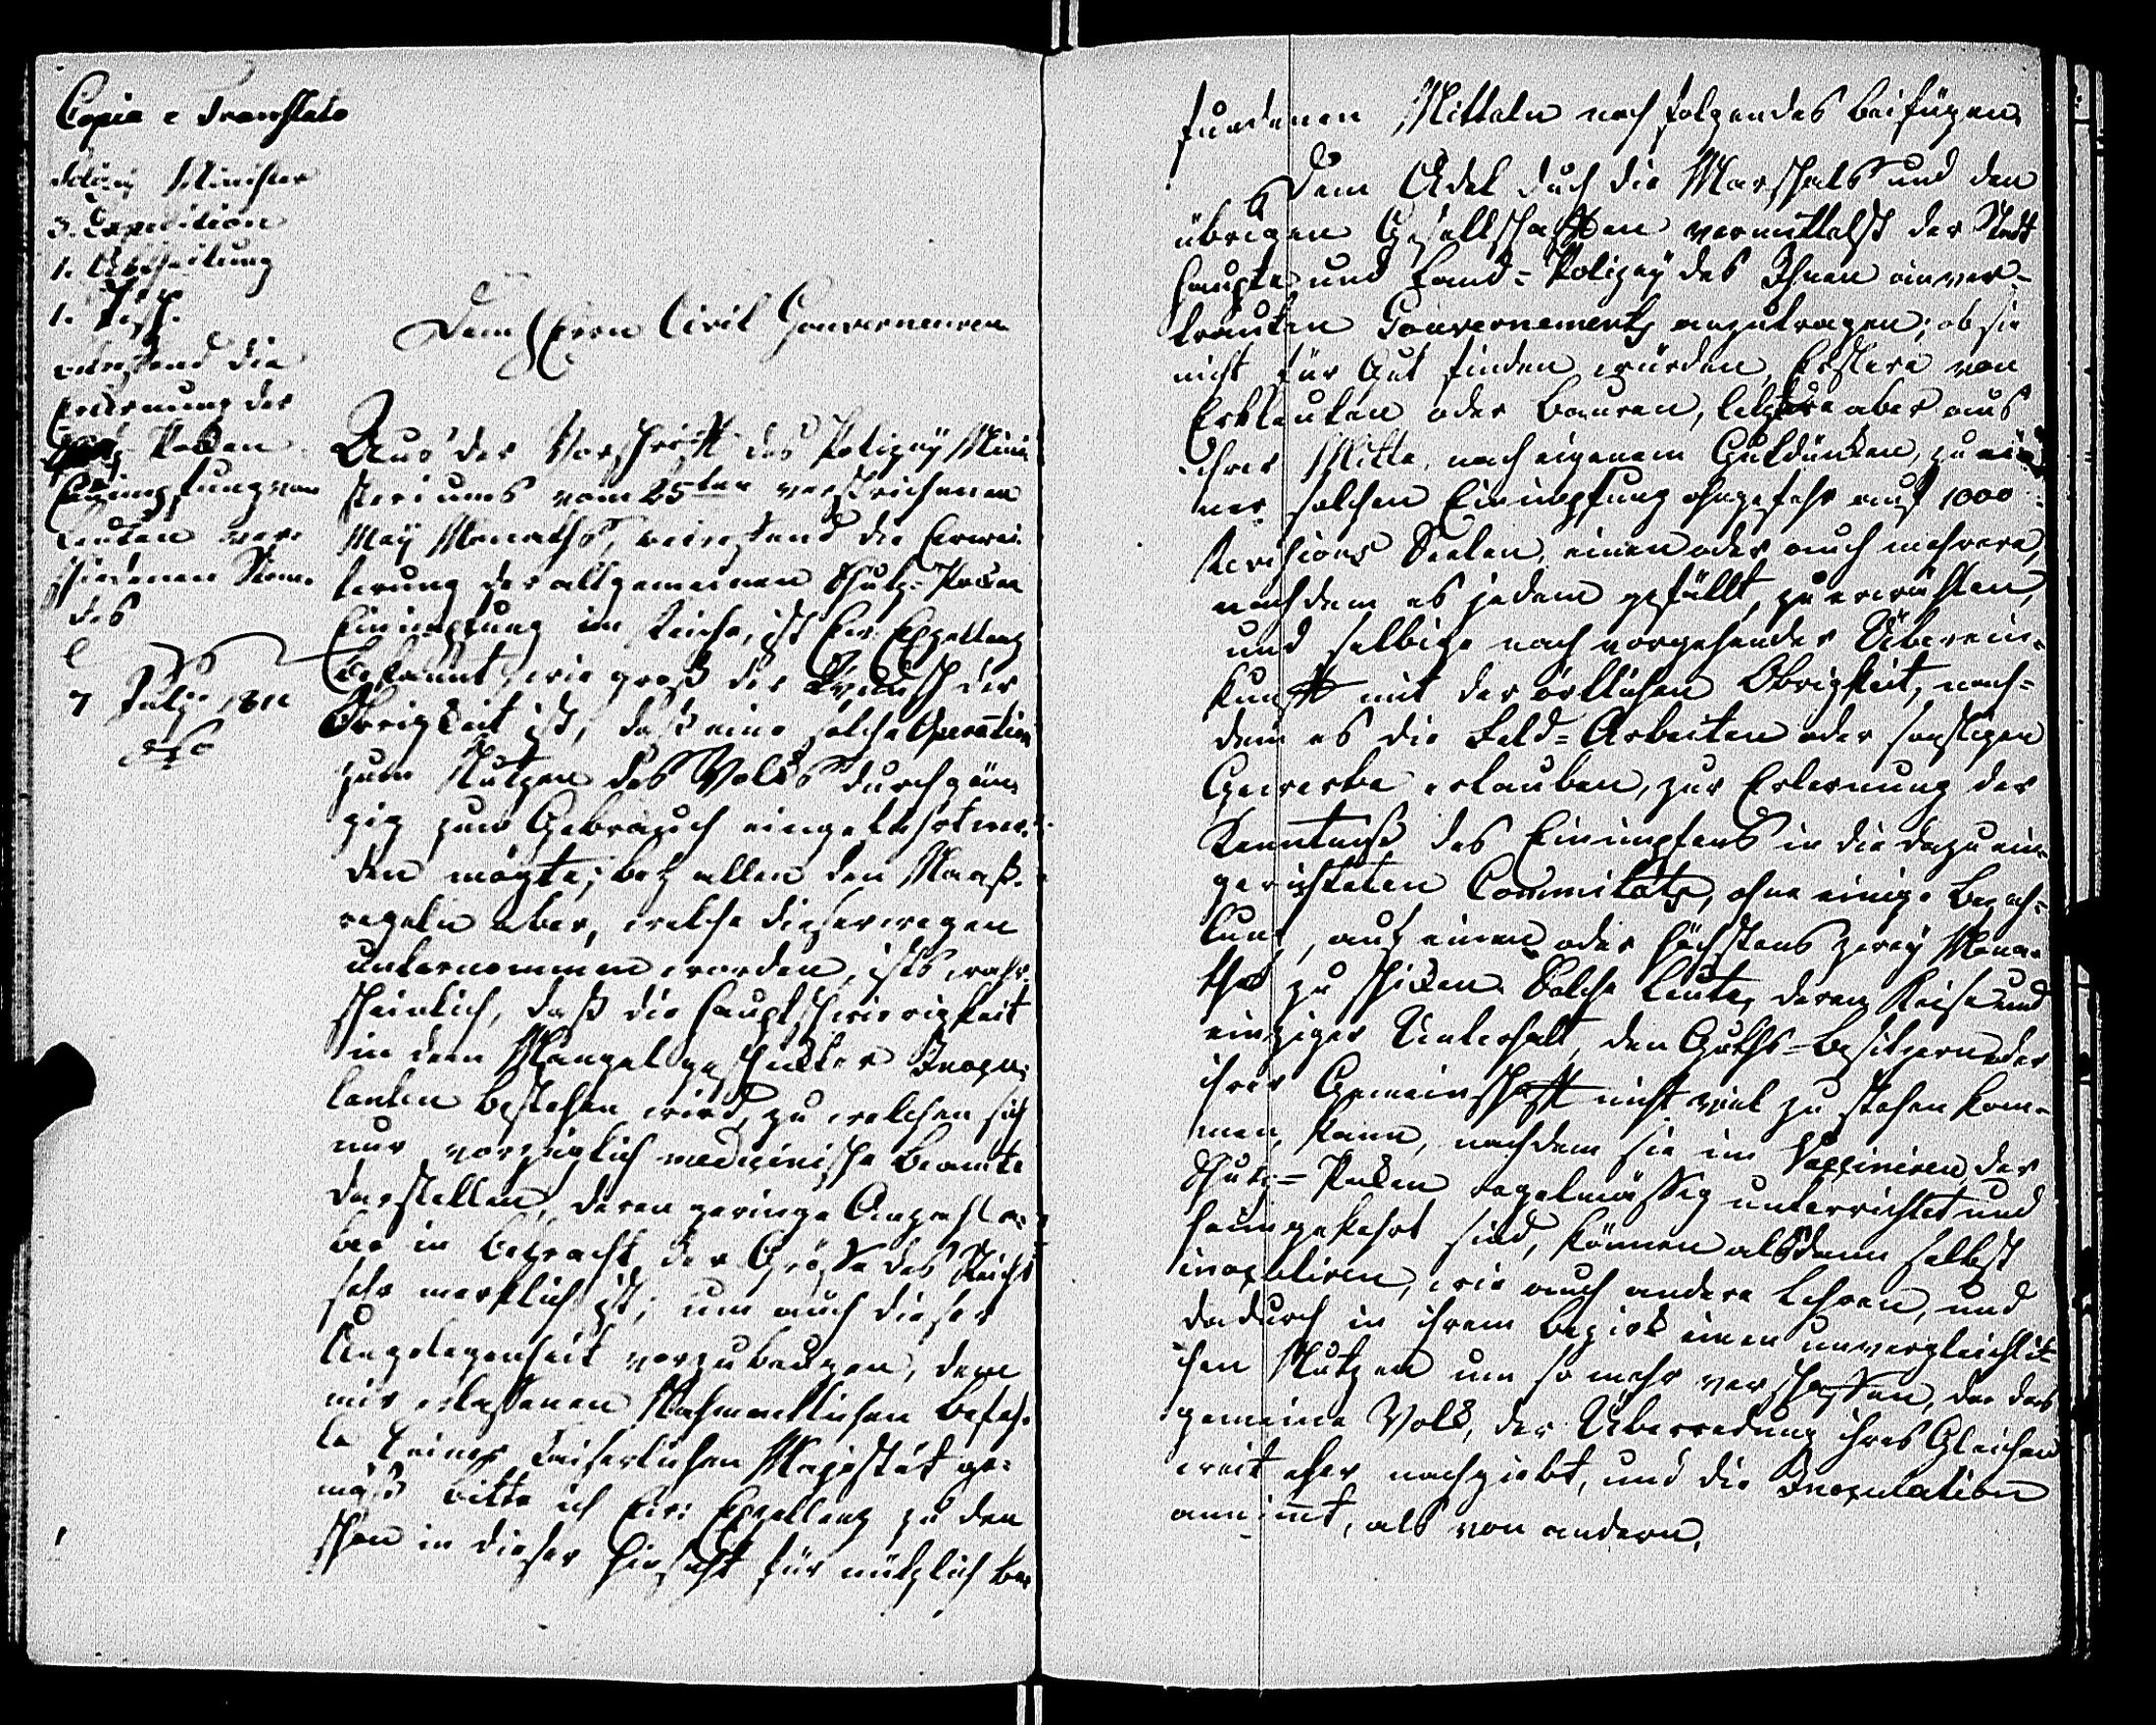 Copia e Translato
Polizey Minister
3. Expedition
1. Abtheilung
1. Tisch.
betreffend die
Erlernung der
Schutz-Pocken
Einimpfung von
Leuten ver-
schiedenen Stan-
des
7 Julij 1811
Dem Herrn Civil Gouverneuren
Aus der Vorschrift des Polizey Mini-
steriums vom 25ten verstrichenen
May Monaths, betreffend die Erwei-
terung der allgemeinen Schutz-Pocken
Einimpfung im Reiche, ist Ew. Excellenz
bekannt, wie groß der Wunsch der
Obrigkeit ist, daß eine solche Operation
zum Nutzen des Volks durchgän-
gig zum Gebrauch eingeführt wer-
den mögte; bey allen den Maaß-
regeln aber, welche dieserwegen
unternommen worden, ists wahr-
scheinlich, daß die Hauptschwierigkeit
in dem Mangel geschickter Inocu-
lanten bestehen wird, zu welchen sich
nur vorzüglich medicinische Beamte
darstellen, deren geringe Anzahl a-
ber in Betracht der Grösse des Reichs
sehr merklich ist; um auch dieser
Ungelegenheit vorzubeugen, dem
mir erlassenen Nahmentlichen Befeh-
le Seiner Kaiserlichen Majestät ge-
mäß bitte ich Ew: Excellenz zu den
schon in dieser Hinsicht für nützlich be-
fundenen Mitteln noch folgendes beifügen.
Dem Adel durch die Marschals und den
übrigen Gesellschaften vermittelst der Stadt
Häupter und Land-Polizey des Ihnen anver-
trauten Gouvernements anzutragen; ob sie
nicht für Gut finden würden, Erstere von
Erbleuten oder Bauren, letztere aber aus
ihrer Mitte, nach eigenem Gutdünken, zu ei-
ner solchen Einimpfung ohngefehr auf 1000
Revisions Seelen, einen oder auch mehrere,
nachdem es jedem gefällt, zu erwählen,
und selbige nach vorgehender Überein-
kunft mit der örtlichen Obrigkeit, nach-
dem es die Feld-Arbeiten oder sonstigen
Gewerbe erlauben, zur Erlernung der
Kenntniß des Einimpfens in die dazu ein-
gerichteten Committäts, ohne einige Bezah-
lung, auf einen oder höchstens zwey Mona-
the zu schicken. Solche Leute, deren Reise und
einziger Unterhalt, den Guths-Besitzern oder
ihrer Gemeinschafft nicht viel zu stehen kom-
men kann, nachdem sie im Vacciniren der
Schutz-Pocken regelmässig unterrichtet und
heimgekehrt sind, können alsdann selbst
inoculiren, wie auch andere lehren, und
dadurch in ihrem Bezirk einen unvergleichli-
chen Nutzen um so mehr verschaffen, da das
gemeine Volk, der Überredung ihres Gleichen
weit eher nachgiebt, und die Inoculation
annimt, als von andern.